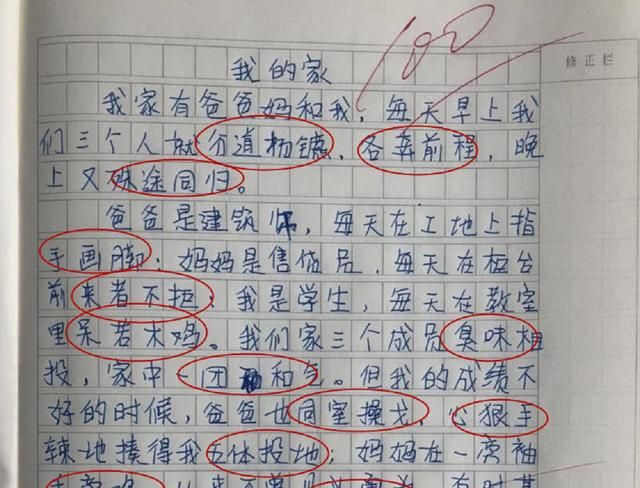 100
修正栏
我的家
我家有爸爸妈和我，每天早上我
们三个人就分道杨镳、各奔前程，晚
上又殊途同归。
爸爸是建筑师，每天在工地上指
手画脚；妈妈是售货员，每天在柜台
前来者不拒；我是学生，每天在教室
里呆若木鸡。我们家三个成员臭味相
投，家中一团和气。但我的成绩不
好的时候，爸爸也同室操戈，心狠手
辣地揍得我五体投地；妈妈在一旁袖